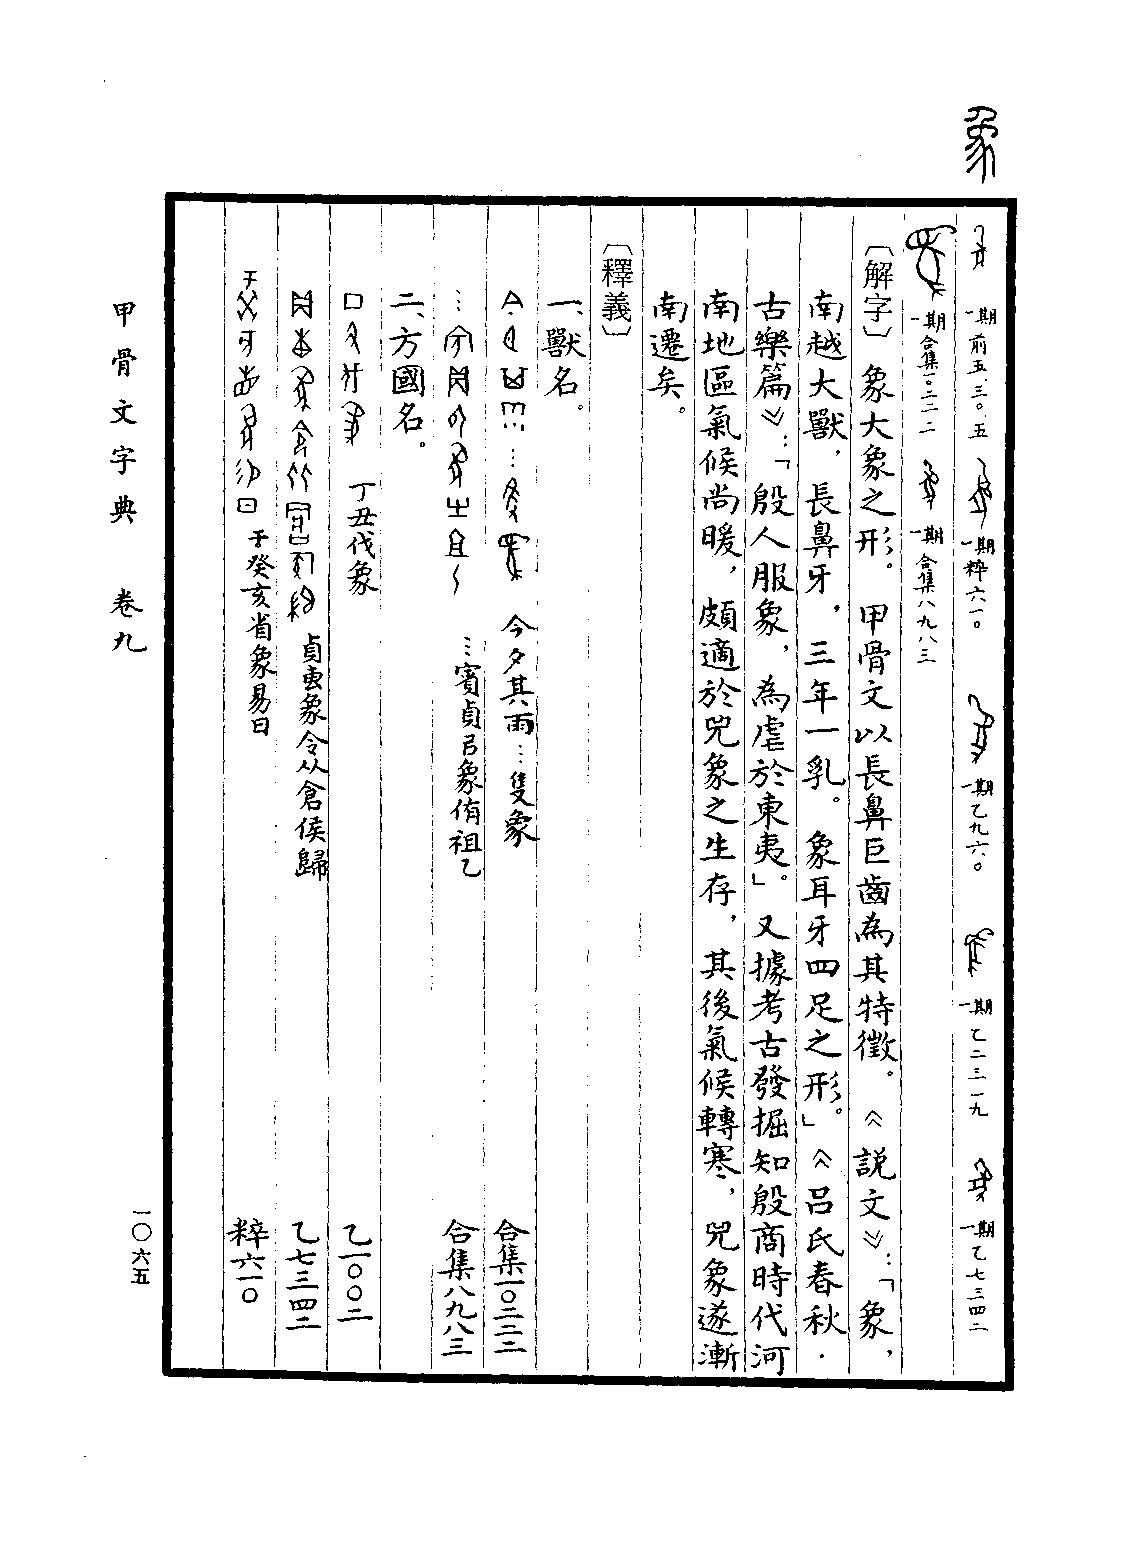 象
一期 前五.三〇.五 一期 粹六一〇 一期 乙九六〇 一期 乙二三一九 一期 乙七三四二
一期 合集一〇二二二 一期 合集八九八三
〔解字〕象大象之形。甲骨文以長鼻巨齒為其特徵。《說文》：「象，
南越大獸，長鼻牙，三年一乳。象耳牙四足之形。」《呂氏春秋·
古樂篇》：「殷人服象，為虐於東夷」。又據考古發掘知殷商時代河
南地區氣候尚暖，頗適於兕象之生存，其後氣候轉寒，兕象遂漸
南遷矣。
〔釋義〕
一、獸名。
今夕其雨…隻象 合集一〇二二二
…賓貞㠯象侑祖乙 合集八九八三
二、方國名。
丁丑伐象 乙一〇〇二
貞叀象令从倉侯歸 乙七三四二
于癸亥省象易日 粹六一〇
甲骨文字典 卷九
一〇六五